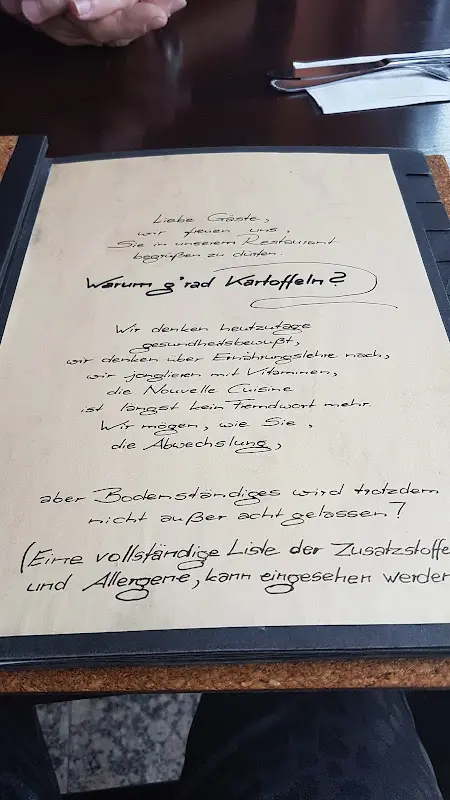 Liebe Gäste,
wir freuen uns,
Sie in unserem Restaurant
begrüßen zu dürfen.
Warum g'rad Kartoffeln?
Wir denken heutzutage
gesundheitsbewußt,
wir denken über Ernährungslehre nach,
wir jonglieren mit Vitaminen,
die Nouvelle Cuisine
ist längst kein Fremdwort mehr.
Wir mögen, wie Sie,
die Abwechslung,
aber Bodenständiges wird trotzdem
nicht außer acht gelassen!
(Eine vollständige Liste der Zusatzstoffe
und Allergene, kann eingesehen werden